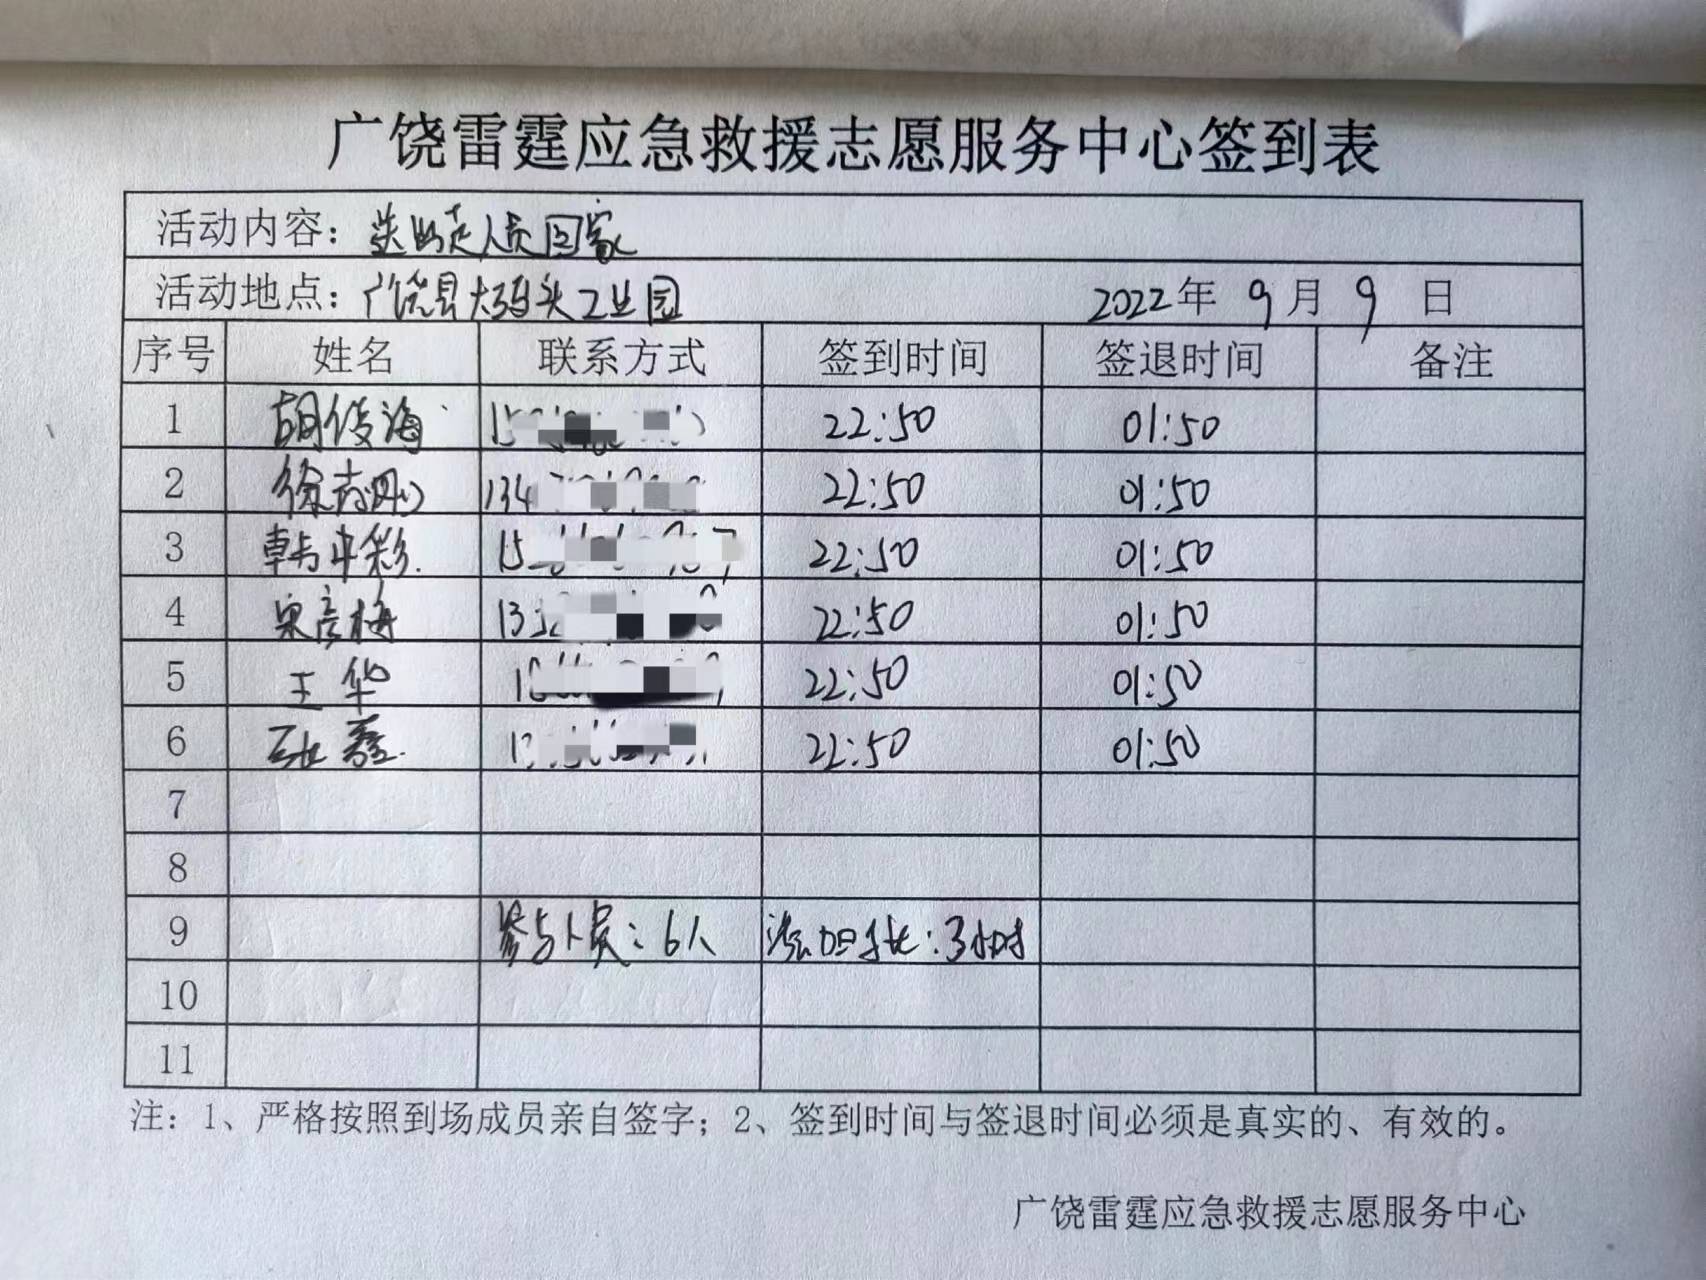 广饶雷霆应急救援志愿服务中心签到表
活动内容：送出走人员回家
活动地点：广饶县大码头工业园 2022年 9月 9 日
序号 姓名 联系方式 签到时间 签退时间 备注
1 胡俊海 22:50 01:50
2 徐志刚 134 22:50 01:50
3 韩中彩 15 22:50 01:50
4 宋彦梅 22:50 01:50
5 王华 22:50 01:50
6 鑫 22:50 01:50
7
8
9 参与人员：6人 时长：3小时
10
11
注：1、严格按照到场成员亲自签字；2、签到时间与签退时间必须是真实的、有效的。
广饶雷霆应急救援志愿服务中心